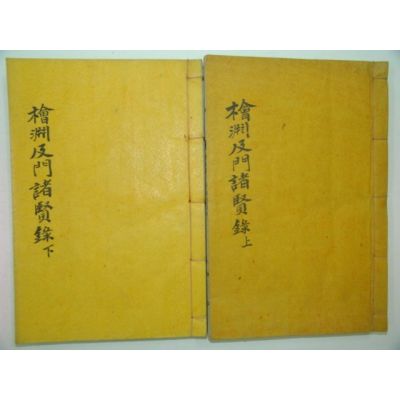 檜淵及門諸賢錄上
檜淵及門諸賢錄下